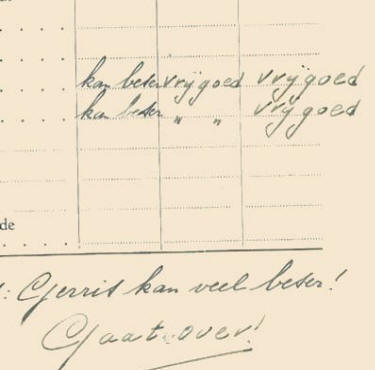 kan beter vrij goed vrij goed
kan beter " " vrij goed
de
: Gerrit kan veel beter!
Gaat over!